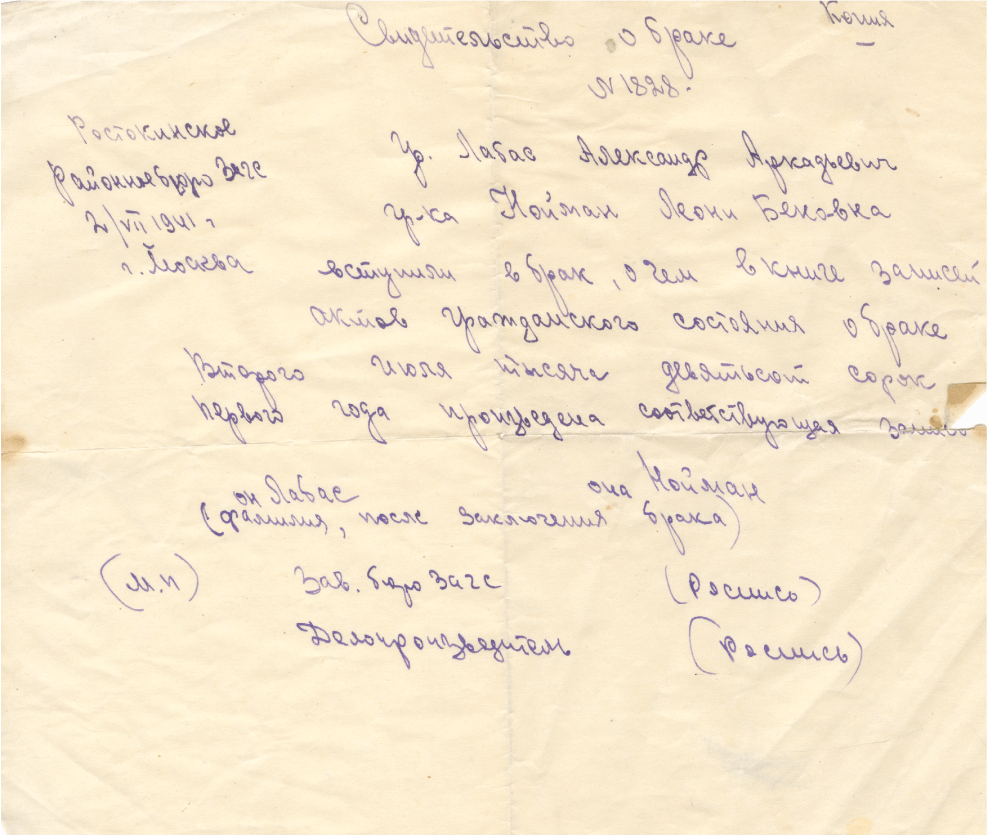 Копия
Свидетельство о браке
N 1828.
Ростокинское
Районное бюро Загс
2/VII 1941 г
г. Москва
Гр. Лабас Александр Аркадьевич
гр-ка Нойман Леони Бековна
вступили в брак, о чем в книге записей
актов гражданского состояния о браке
Второго июля тысяча девятьсот сорок
первого года произведена соответствующая запись
он Лабас она Нойман
(фамилия, после заключения брака)
(М.п) Зав. бюро Загс (Роспись)
Делопроизводитель (Роспись)